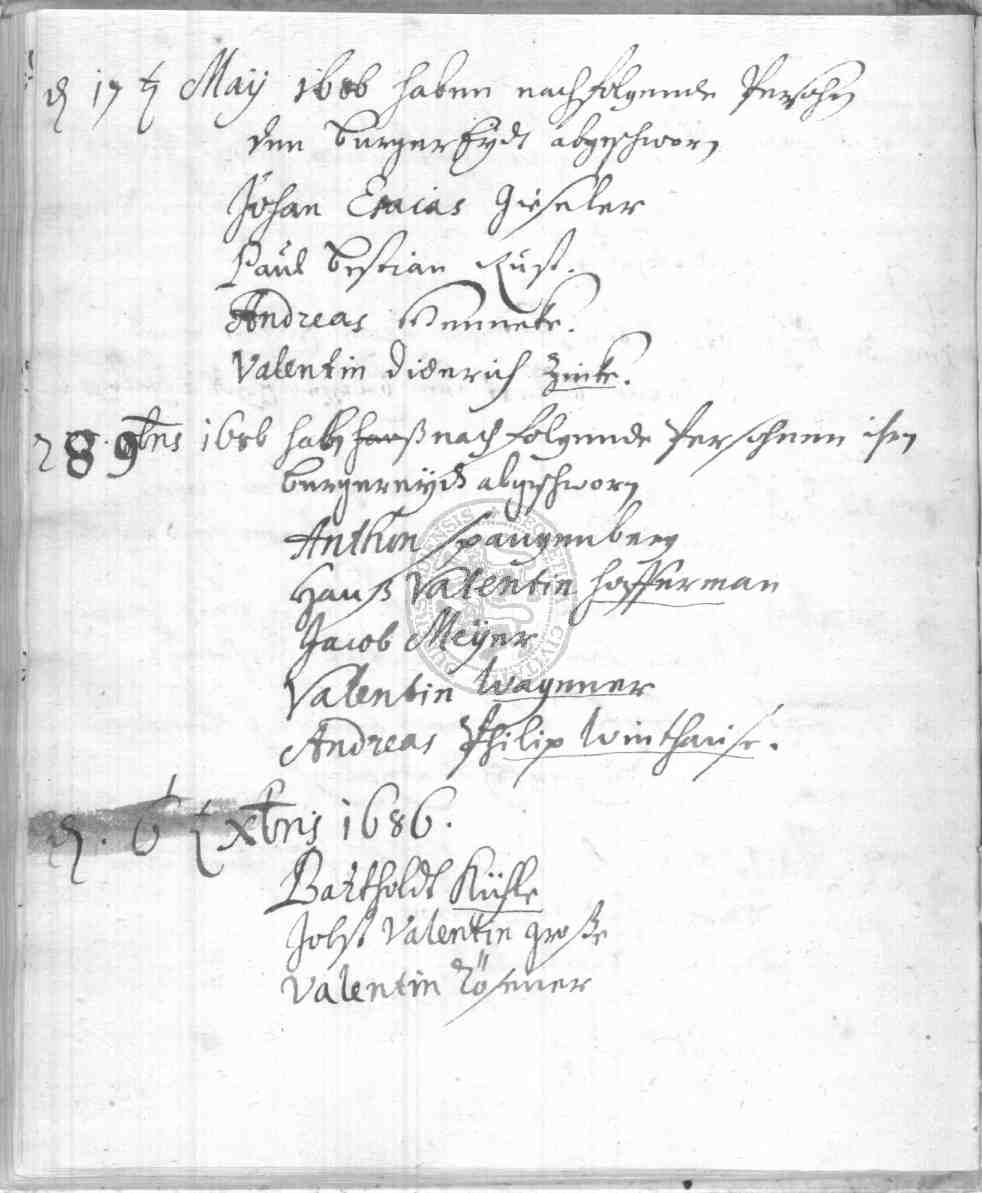 d 17 t Maÿ 1686 haben nachfolgende Persohn
den burger Eydt abgeschworn
Johan Esaias Gieseler
Paul Bestian Rust.
Andreas Henneke.
Valentin Diderich Zinke.
28 9bris 1686 haben nachfolgende Persohnen ihrn
burgereydt abgeschworn
Anthon Spangenberg
Hanß Valentin Hofferman
Jacob Meÿer
Valentin Wagener
Andreas Philip Winthause.
d. 6 t xbris 1686.
Bartholdt Kühle
Jobst Valentin Große
Valentin Rösener